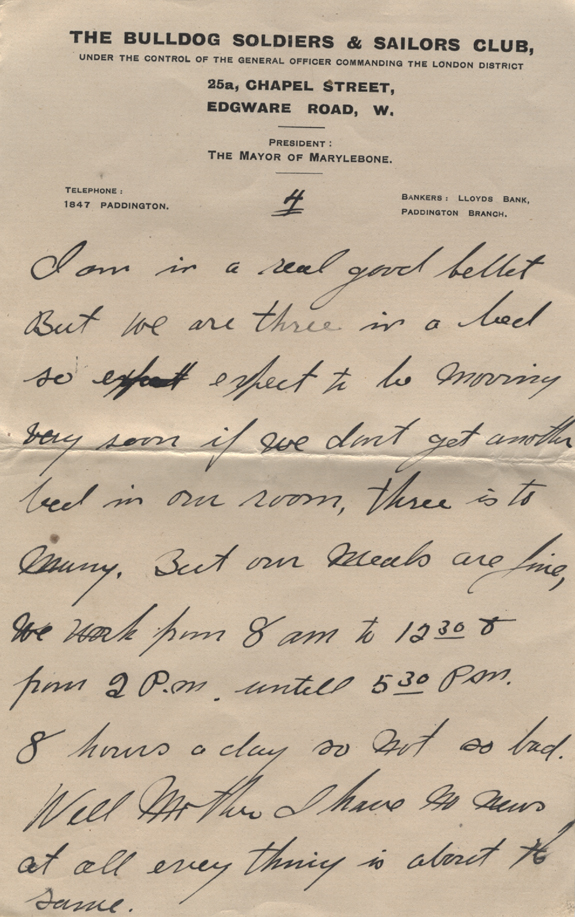 THE BULLDOG SOLDIERS & SAILORS CLUB,
UNDER THE CONTROL OF THE GENERAL OFFICER COMMANDING THE LONDON DISTRICT
25a, CHAPEL STREET,
EDGWARE ROAD, W.
PRESIDENT :
THE MAYOR OF MARYLEBONE.
TELEPHONE :
1847 PADDINGTON.
4
BANKERS : LLOYDS BANK,
PADDINGTON BRANCH.
I am in a real good bellet
But we are three in a bed
so expect to be moving
very soon if we dont get another
bed in our room, three is to
many. But our meals are fine,
We work from 8 am to 12 30 &
from 2 P.m. untill 5 30 P.m.
8 hours a day so not so bad.
Well Mother I have no news
at all every thing is about the
same.